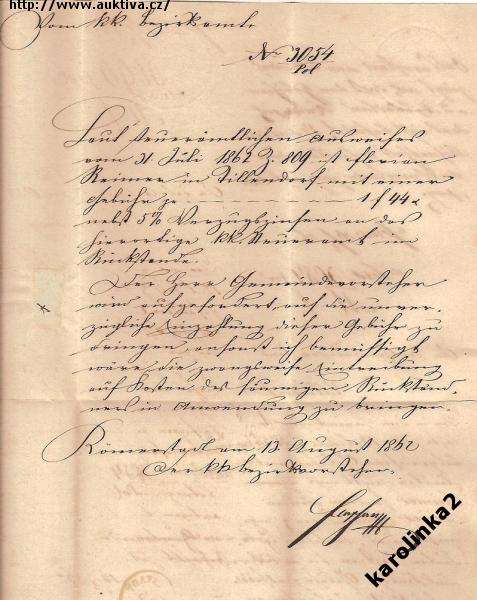 http://www.auktiva.cz/
Vom kk. Bezirksamte
No 3054
Pol
Laut steueramtlichen Ausweises
vom 31. Juli 1862 Z. 809 ist Florian
Reimer in Tillendorf mit einer
Gebühr pr 1 f 44 x
nebst 5% Verzugszinsen an das
hierortige kk. Steueramt im
Rückstande.
Der Herr Gemeindevorsteher
wird aufgefordert, auf die unver-
zügliche Einzahlung dieser Gebühr zu
dringen, ansonst ich bemüssigt
wäre, die zwangsweise Eintreibung
auf Kosten des säumigen Rückständ-
ners in Anwendung zu bringen.
Römerstadt am 13. August 1862
Der kk Bezirksvorsteher
karolinka2